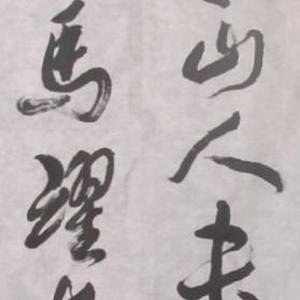 山人未
馬躍